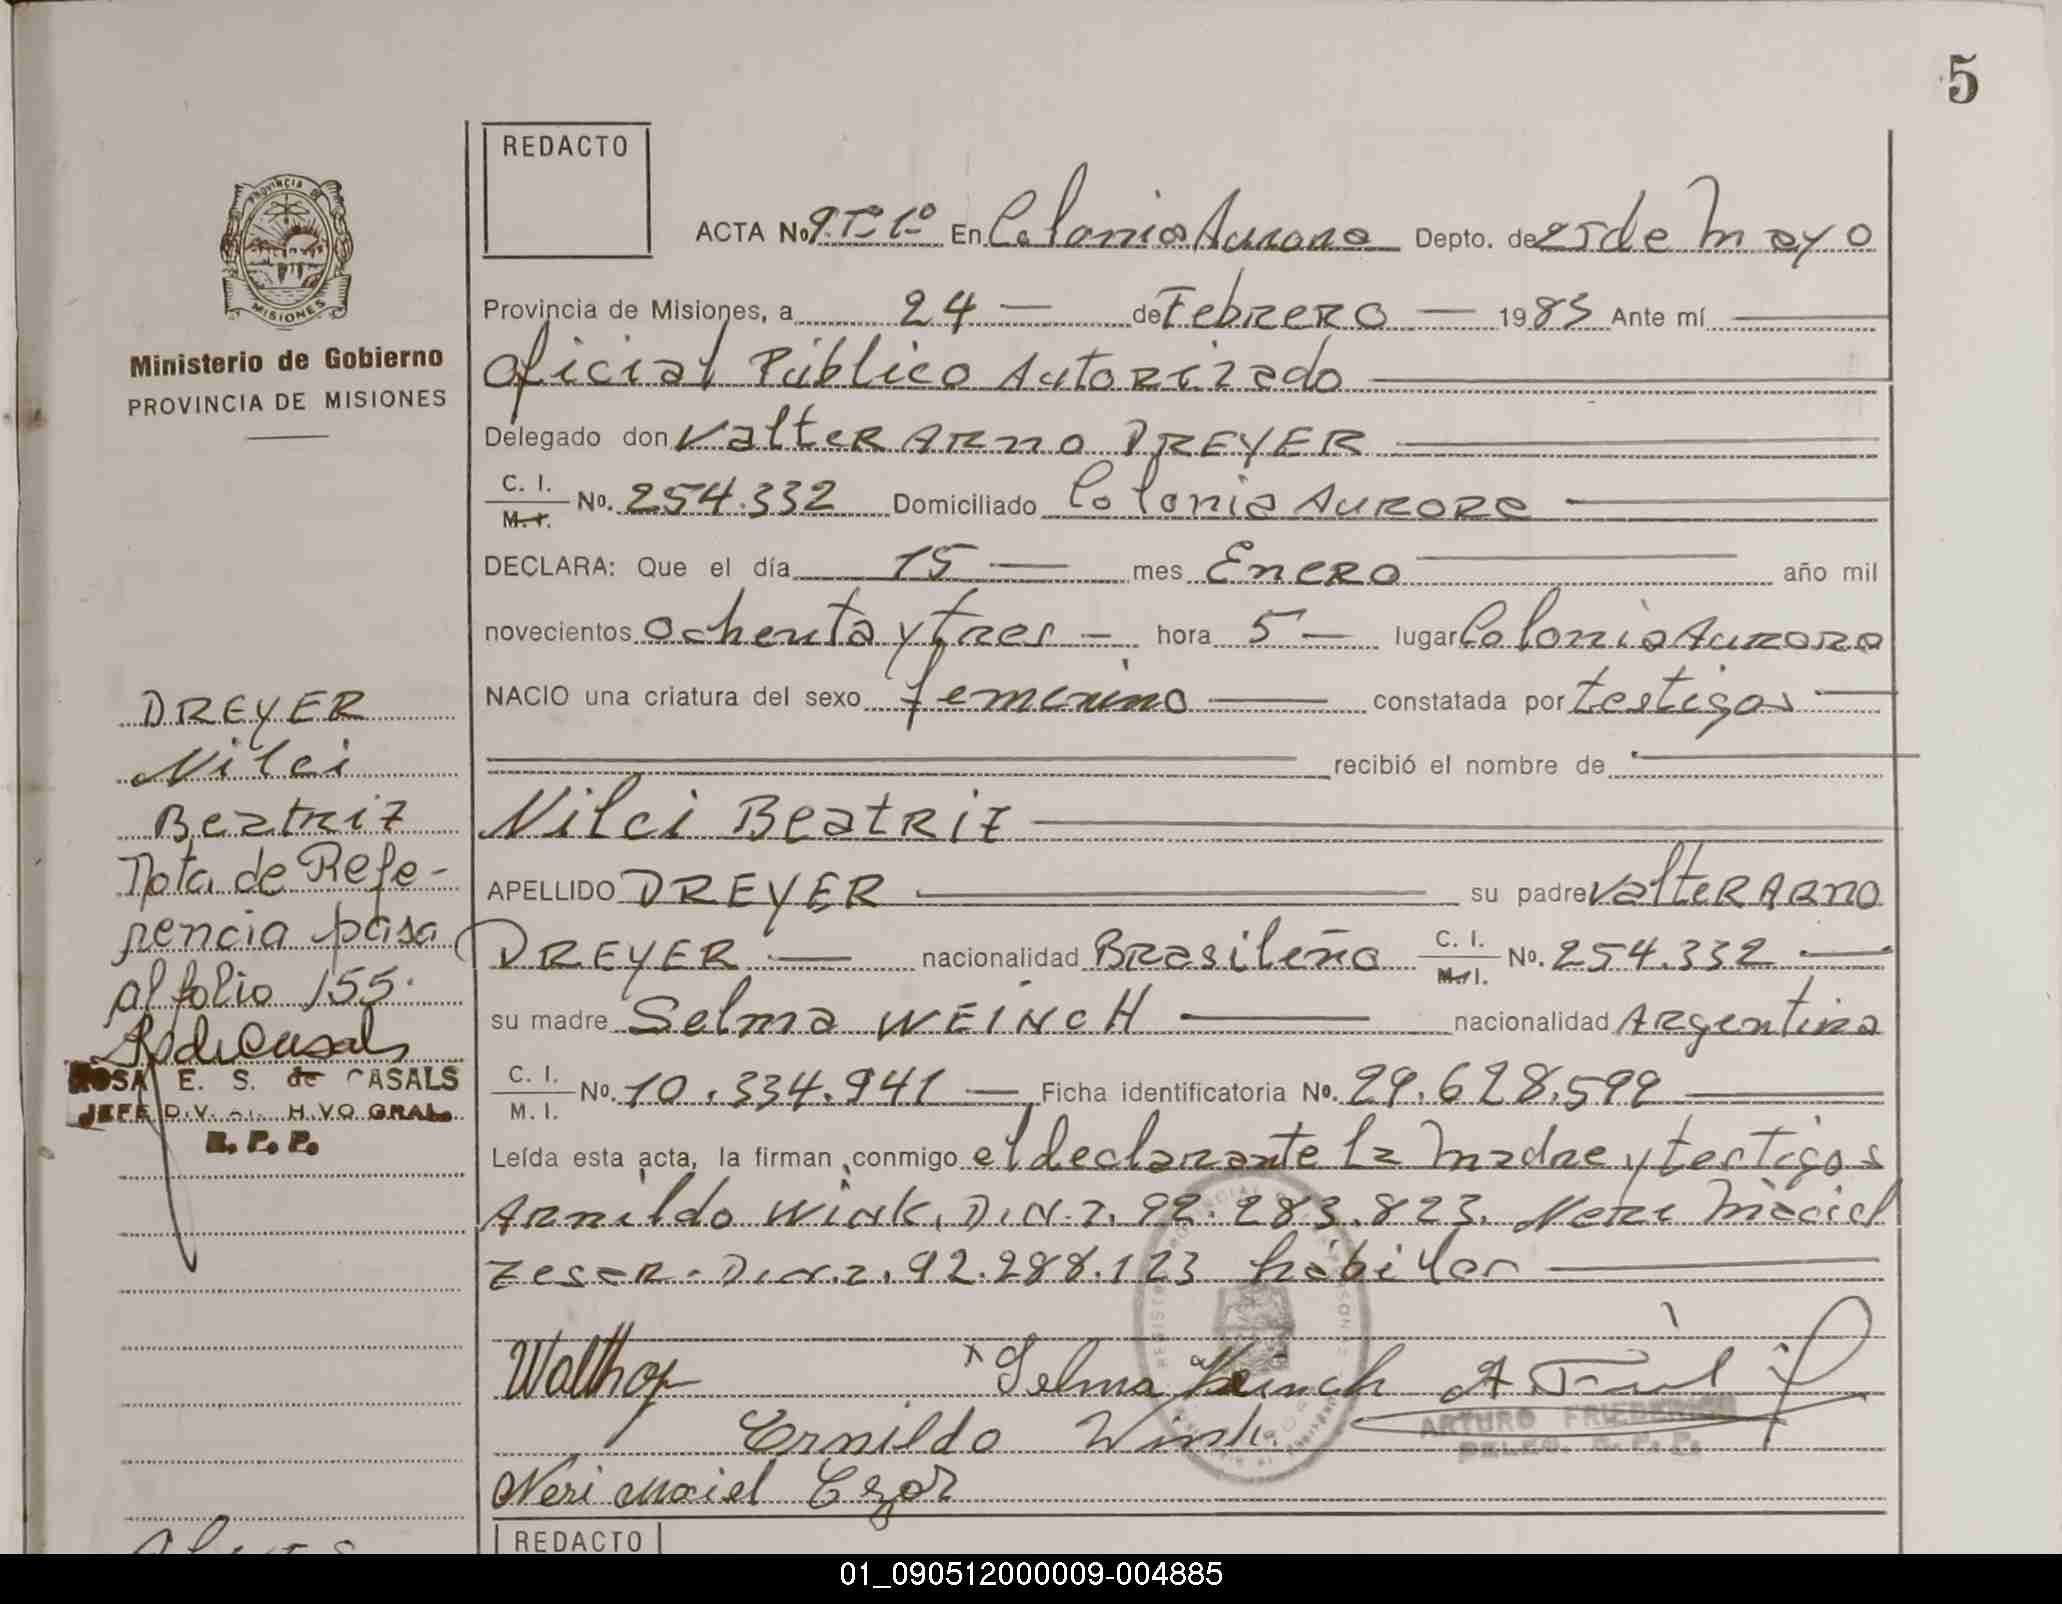 5
REDACTO
ACTA No 9.Tº 1º En Colonia Aurora Depto. de 25 de Mayo
Provincia de Misiones, a 24 — de Febrero — 1983 Ante mí
Oficial Público Autorizado
Delegado don Valter Arno DREYER
C. I. M. I. No. 254.332 Domiciliado Colonia Aurora
DECLARA: Que el día 15 — mes Enero año mil
novecientos ochenta y tres — hora 5 — lugar Colonia Aurora
NACIO una criatura del sexo femenino — constatada por testigos
recibió el nombre de
Nilci Beatriz
APELLIDO DREYER su padre Valter Arno
DREYER — nacionalidad Brasileña C. I. M. I. No. 254.332 —
su madre Selma WEINCH — nacionalidad Argentina
C. I. M. I. No. 10.334.941 — Ficha identificatoria No. 29.628.599
Leída esta acta, la firman conmigo el declarante la madre y testigos
Arnildo Wink, D.N.I. 92.283.823. Neri Maciel
Zesar. D.N.I. 92.288.123 hábiles
Selma Weinch
ARTURO FRIEDERICH
DELEG. R. P. P.
Ernildo Wink.
Neri Maciel Cezar
REDACTO
PROVINCIA DE
MISIONES
Ministerio de Gobierno
PROVINCIA DE MISIONES
DREYER
Nilci
Beatriz
Nota de Refe-
rencia pasa
al folio 155.
ROSA E. S. de CASALS
JEFE DIV. ARCHIVO GRAL.
R. P. P.
01_090512000009-004885